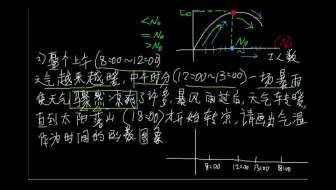 < No
= No
> No
Co
No
(N)
工人数
2) 整个上午 (8:00~12:00)
天气越来越暖，中午时分(12:00~13:00)一场暴雨
使天气骤然凉爽了许多，暴风雨过后，天气转暖，
直到太阳落山 (18:00)才开始转凉，请画出气温
作为时间的函数图象
8:00 12:00 13:00 18:00